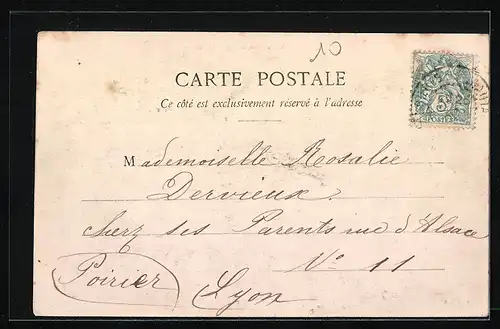 10
CARTE POSTALE
Ce côté est exclusivement réservé à l'adresse
Mademoiselle Rosalie
Dervieux
chez ses Parents rue d'Alsace
N° 11
Poirier
Lyon
5
POSTES